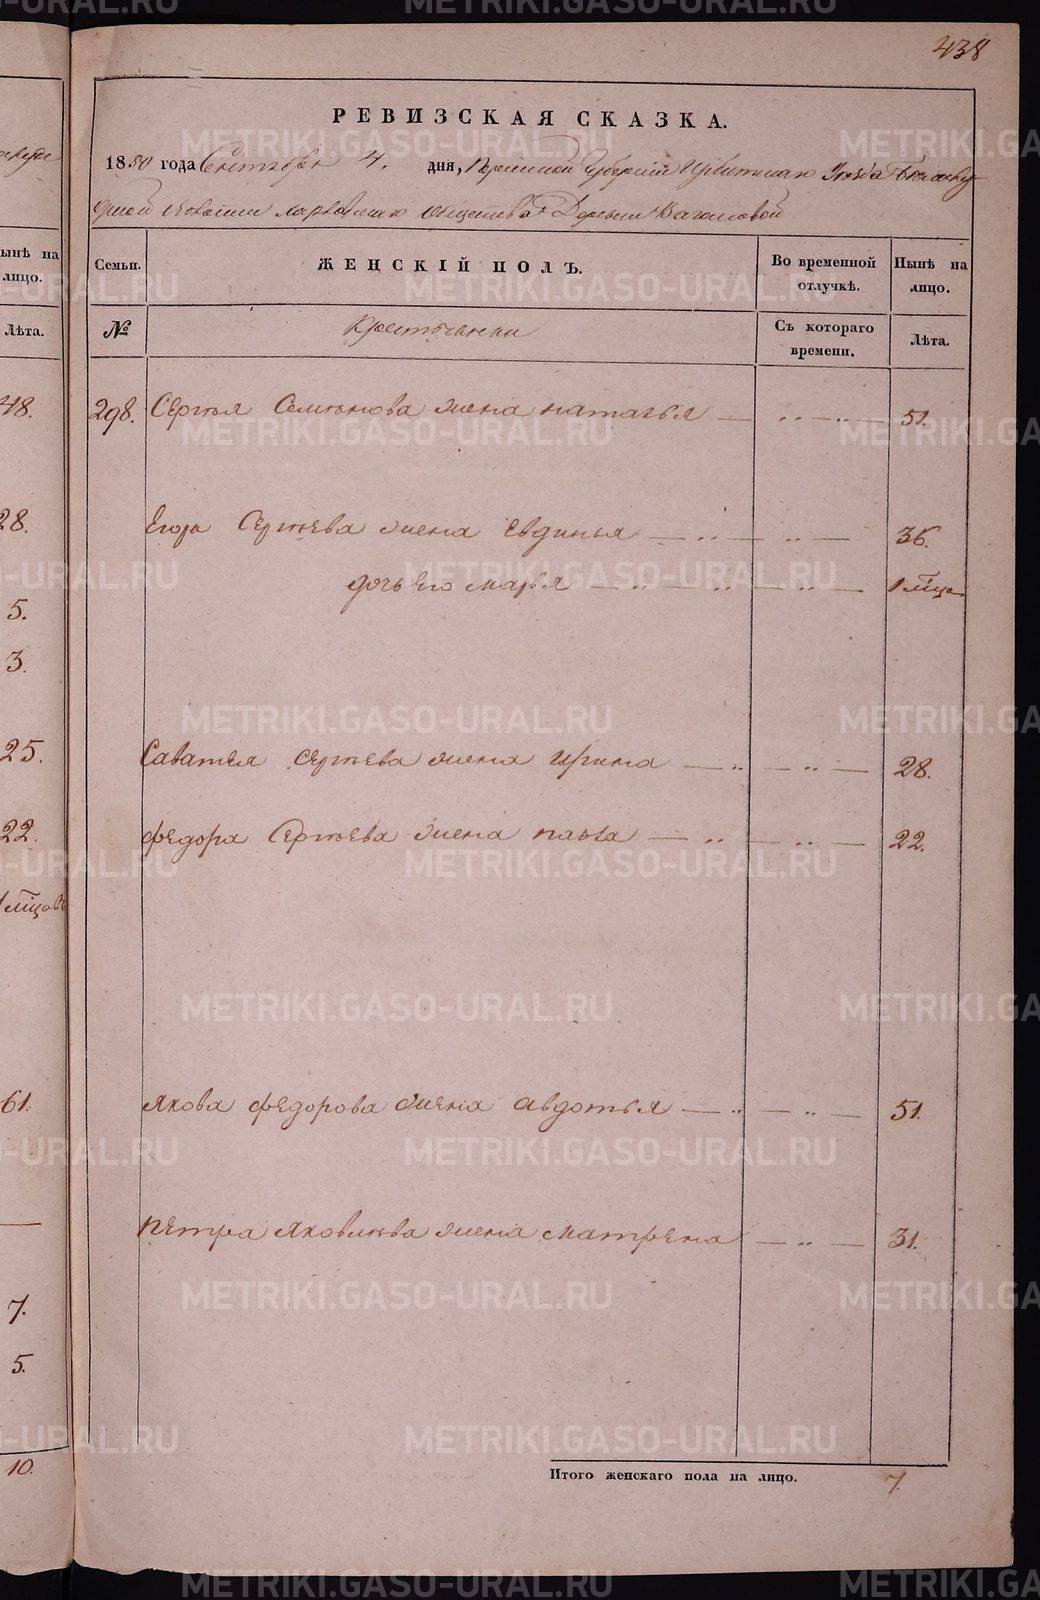 438
РЕВИЗСКАЯ СКАЗКА.
1850 года Сентября 4. дня, Пермской Губернии Ирбитскаго Уѣзда
общества Деревни Вагановой
ынѣ на лицо.
Лѣта.
Семьи.
ЖЕНСКІЙ ПОЛЪ.
Во временной отлучкѣ.
Нынѣ на лицо.
№
Крестьянки
Съ котораго времени.
Лѣта.
48.
298. Сергѣя Семенова жена Наталья — „ — „ — 51.
28.
Егора Сергѣева жена Евдинья — „ — „ — 36.
дочь его Марья — „ — „ — „ — 1 мѣца
5.
3.
25.
Саватея Сергѣева жена Ирина — „ — „ — 28.
22.
Федора Сергѣева жена Павла — „ — „ — 22.
мѣцовъ
61.
Якова Федорова жена Авдотья — „ — „ — 51.
Петра Яковлева жена Матрена — „ — 31.
7.
5.
10.
Итого женскаго пола на лицо. 7.
METRIKI.GASO-URAL.RU